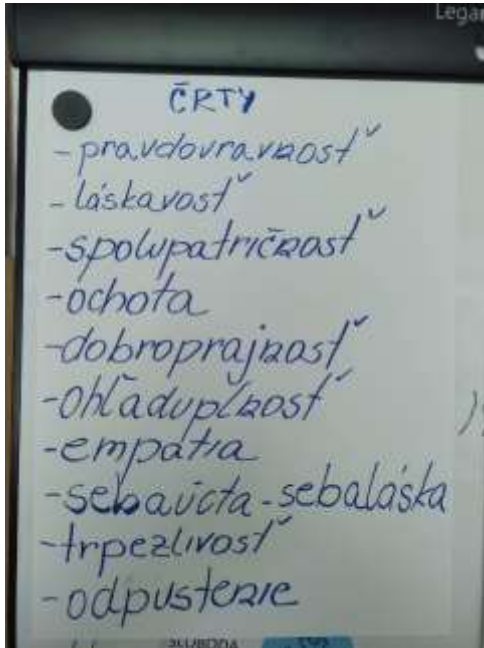 Legan
ČRTY
- pravdovravnosť
- láskavosť
- spolupatričnosť
- ochota
- dobroprajnosť
- ohľaduplnosť
- empatia
- sebaúcta - sebaláska
- trpezlivosť
- odpustenie
SLOBODA